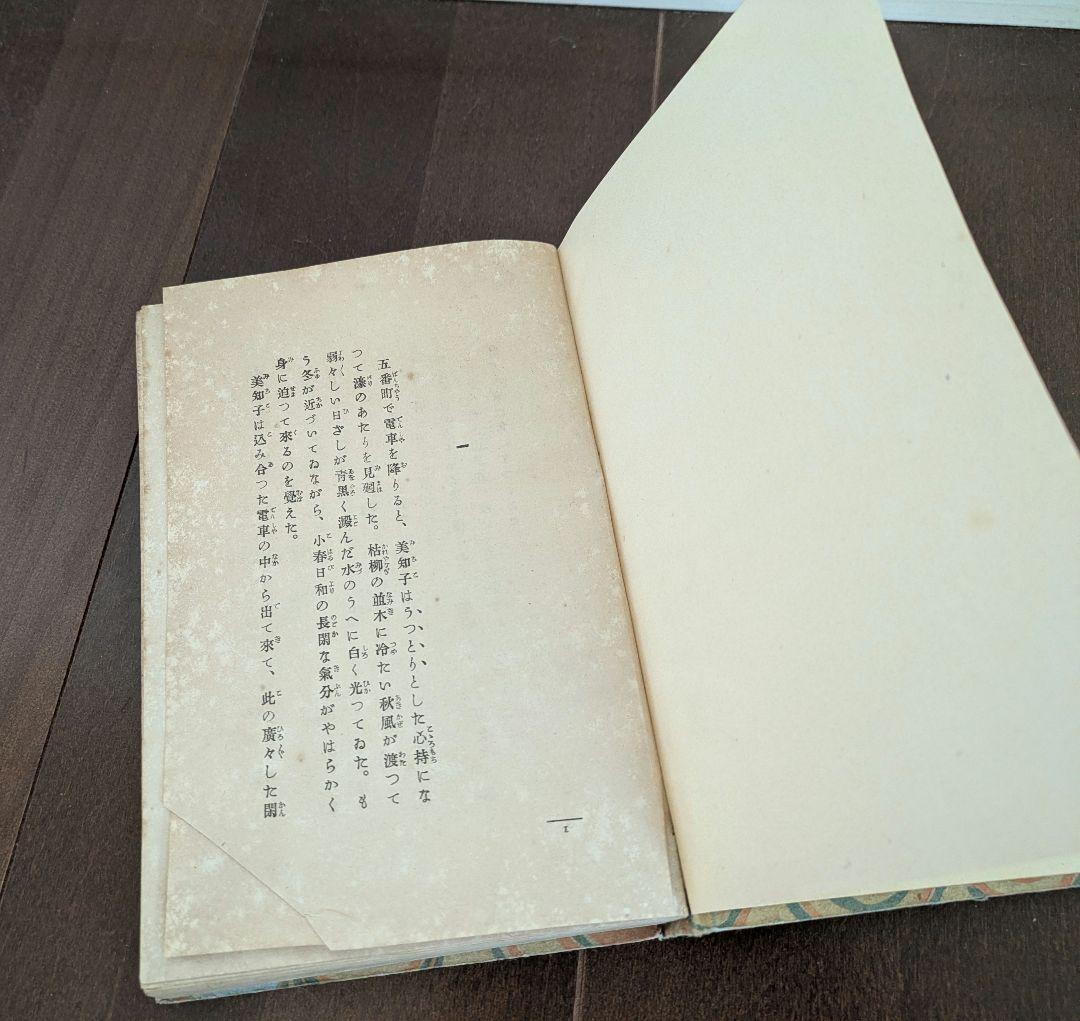 一
五番町で電車を降りると、美知子はうつとりとした心持にな
つて濠のあたりを見廻した。枯柳の並木に冷たい秋風が渡つて
弱々しい日ざしが青黒く澱んだ水のうへに白く光つてゐた。も
う冬が近づいてゐながら、小春日和の長閑な氣分がやはらかく
身に迫つて來るのを覺えた。
美知子は込み合つた電車の中から出て來て、此の廣々した閑
1